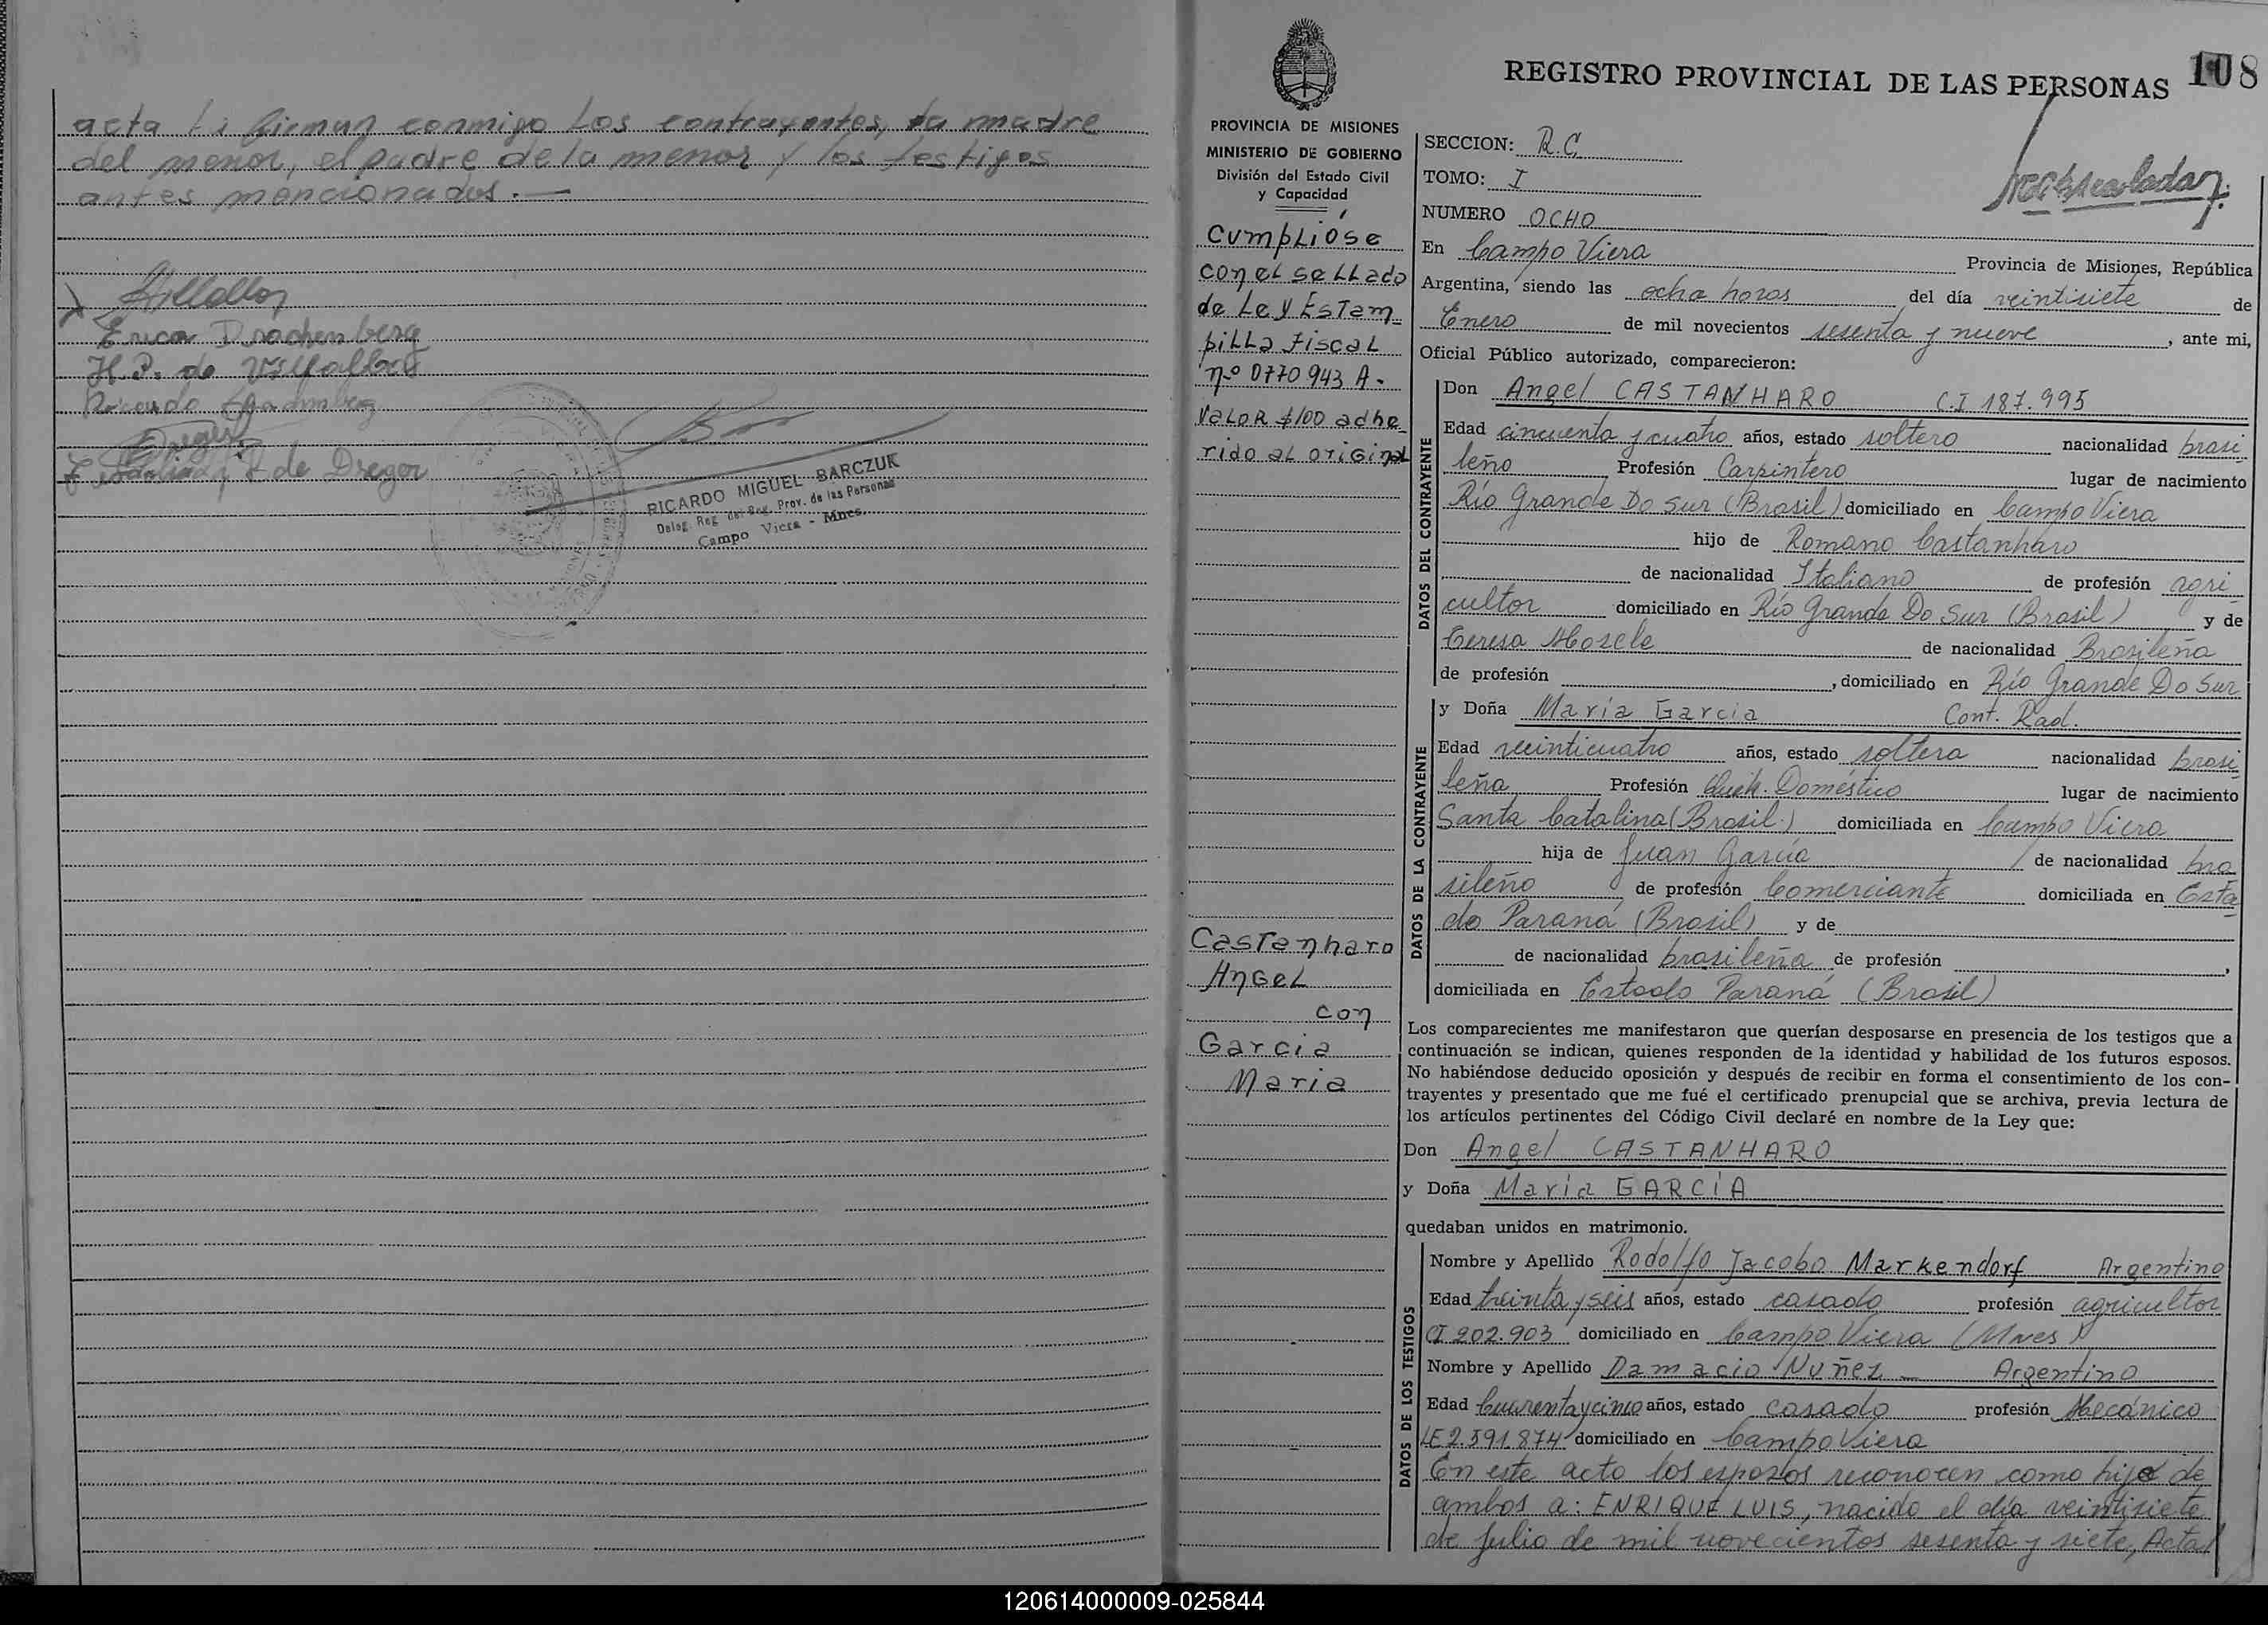 acta La firman conmigo los contrayentes, la madre
del menor, el padre de la menor y los testigos
antes mencionados.—
Erica Drachenberg
H. P. de Villalba
Ricardo
de Dreger
RICARDO MIGUEL BARCZUK
Deleg. Reg. del Reg. Prov. de las Personas
Campo Viera - Mnes.
REGISTRO PROVINCIAL DE LAS PERSONAS 108
PROVINCIA DE MISIONES
MINISTERIO DE GOBIERNO
División del Estado Civil
y Capacidad
Cumplióse
con el sellado
de Ley Estam
pilla fiscal
nº 0770943 A.
Valor $100 adhe
rido al original
Castanharo
Angel
con
Garcia
Maria
SECCION: R.C.
TOMO: I
NUMERO OCHO
En Campo Viera Provincia de Misiones, República
Argentina, siendo las ocho horas del día veintisiete de
Enero de mil novecientos sesenta y nueve, ante mi,
Oficial Público autorizado, comparecieron:
DATOS DEL CONTRAYENTE
Don Angel CASTANHARO C.I 187.995
Edad cincuenta y cuatro años, estado soltero nacionalidad brasi
leño Profesión Carpintero lugar de nacimiento
Río Grande Do Sur (Brasil) domiciliado en Campo Viera
hijo de Romano Castanharo
de nacionalidad Italiano de profesión agri
cultor domiciliado en Río Grande Do Sur (Brasil) y de
Teresa Mozele de nacionalidad Brasileña
de profesión , domiciliado en Río Grande Do Sur
DATOS DE LA CONTRAYENTE
y Doña María Garcia Cont. Rad.
Edad veinticuatro años, estado soltera nacionalidad brasi
leña Profesión Queh. Doméstico lugar de nacimiento
Santa Catalina (Brasil.) domiciliada en Campo Viera
hija de Juan García de nacionalidad bra
sileño de profesión Comerciante domiciliada en Esta
do Paraná (Brasil) y de
de nacionalidad brasileña de profesión ,
domiciliada en Estado Paraná (Brasil)
Los comparecientes me manifestaron que querían desposarse en presencia de los testigos que a
continuación se indican, quienes responden de la identidad y habilidad de los futuros esposos.
No habiéndose deducido oposición y después de recibir en forma el consentimiento de los con-
trayentes y presentado que me fué el certificado prenupcial que se archiva, previa lectura de
los artículos pertinentes del Código Civil declaré en nombre de la Ley que:
Don Angel CASTANHARO
y Doña María GARCÍA
quedaban unidos en matrimonio.
DATOS DE LOS TESTIGOS
Nombre y Apellido Rodolfo Jacobo Markendorf Argentino
Edad treinta y seis años, estado casado profesión agricultor
CI 202.903 domiciliado en Campo Viera (Mnes)
Nombre y Apellido Damacio Nuñez — Argentino
Edad Cuarenta y cinco años, estado casado profesión Mecánico
LE 2.591.874 domiciliado en Campo Viera
En este acto los esposos reconocen como hijo de
ambos a: ENRIQUE LUIS, nacido el día veintisiete
de Julio de mil novecientos sesenta y siete, Acta
120614000009-025844